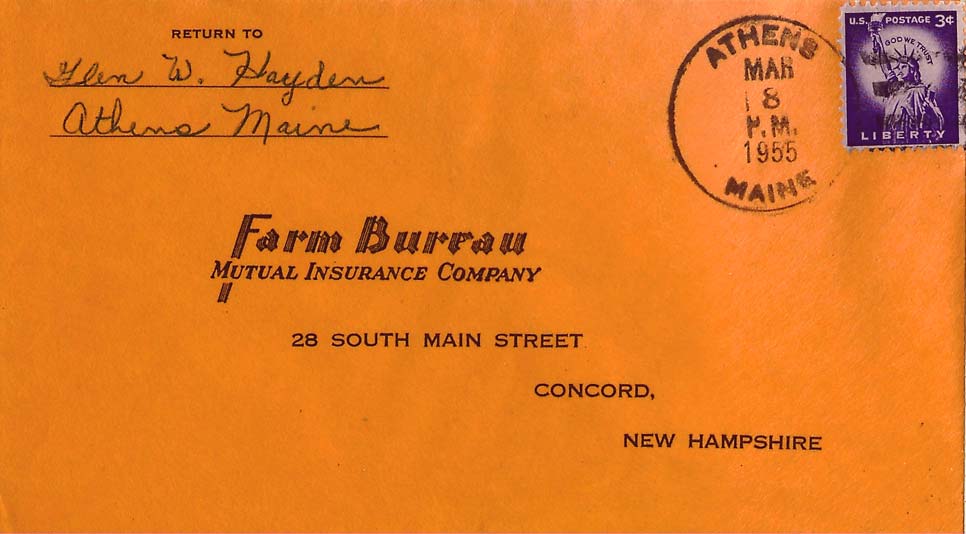 RETURN TO
Glen W. Hayden
Athens Maine
ATHENS
MAR
8
P.M.
1955
MAINE
U.S. POSTAGE 3¢
IN GOD WE TRUST
LIBERTY
Farm Bureau
MUTUAL INSURANCE COMPANY
28 SOUTH MAIN STREET
CONCORD,
NEW HAMPSHIRE